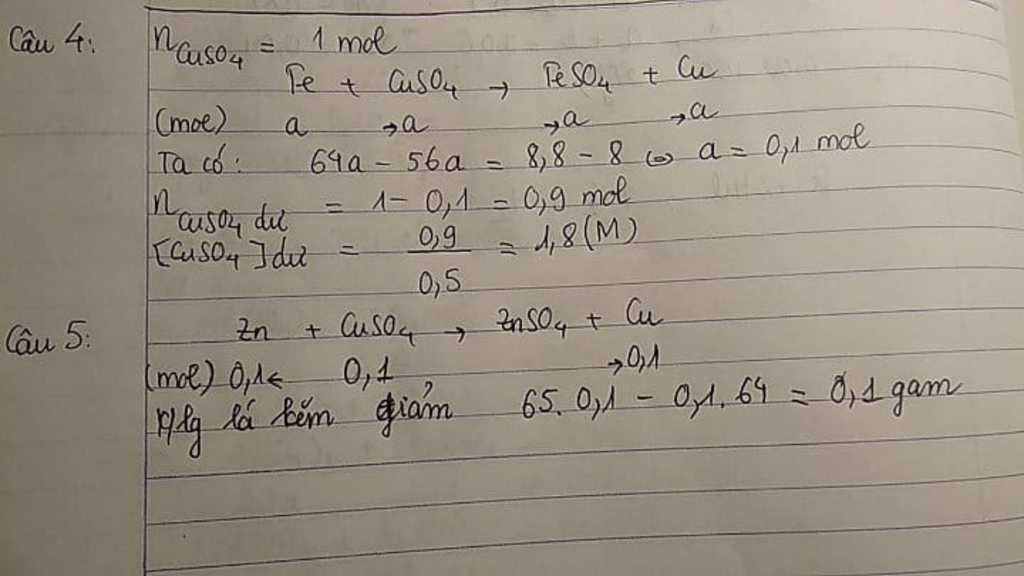 Câu 4: n CuSO4 = 1 mol
Fe + CuSO4 → FeSO4 + Cu
(mol) a →a →a →a
Ta có: 64a - 56a = 8,8 - 8 ⇔ a = 0,1 mol
n CuSO4 dư = 1 - 0,1 = 0,9 mol
[CuSO4] dư = 0,9 / 0,5 = 1,8 (M)
Câu 5: Zn + CuSO4 → ZnSO4 + Cu
(mol) 0,1← 0,1 →0,1
lá kẽm giảm 65. 0,1 - 0,1. 64 = 0,1 gam